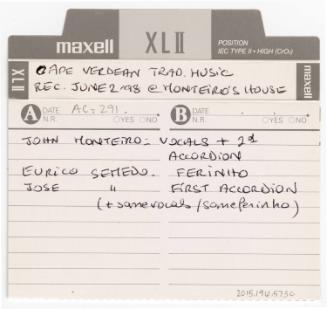 maxell XLII POSITION
IEC TYPE II • HIGH (CrO₂)
XLII
XLII
CAPE VERDEAN TRAD. MUSIC
REC. JUNE 2 '98 @ MONTEIRO'S HOUSE
A DATE AC-291. B DATE
N.R. ○YES ○NO N.R. ○YES ○NO
JOHN MONTEIRO - VOCALS + 2d
ACCORDION
EURICO SEMEDO. FERINHO
JOSE " FIRST ACCORDION
(+ some vocals / some ferinho)
2015.194.5730